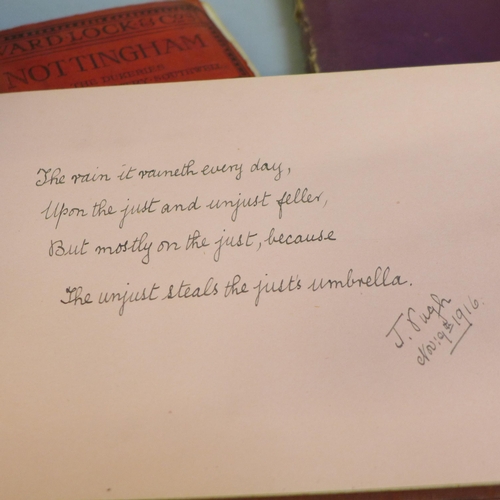 WARD LOCK & Co's
NOTTINGHAM
THE DUKERIES
SOUTHWELL
The rain it raineth every day,
Upon the just and unjust feller,
But mostly on the just, because
The unjust steals the just's umbrella.
J. Pugh
Nov: 9th 1916.